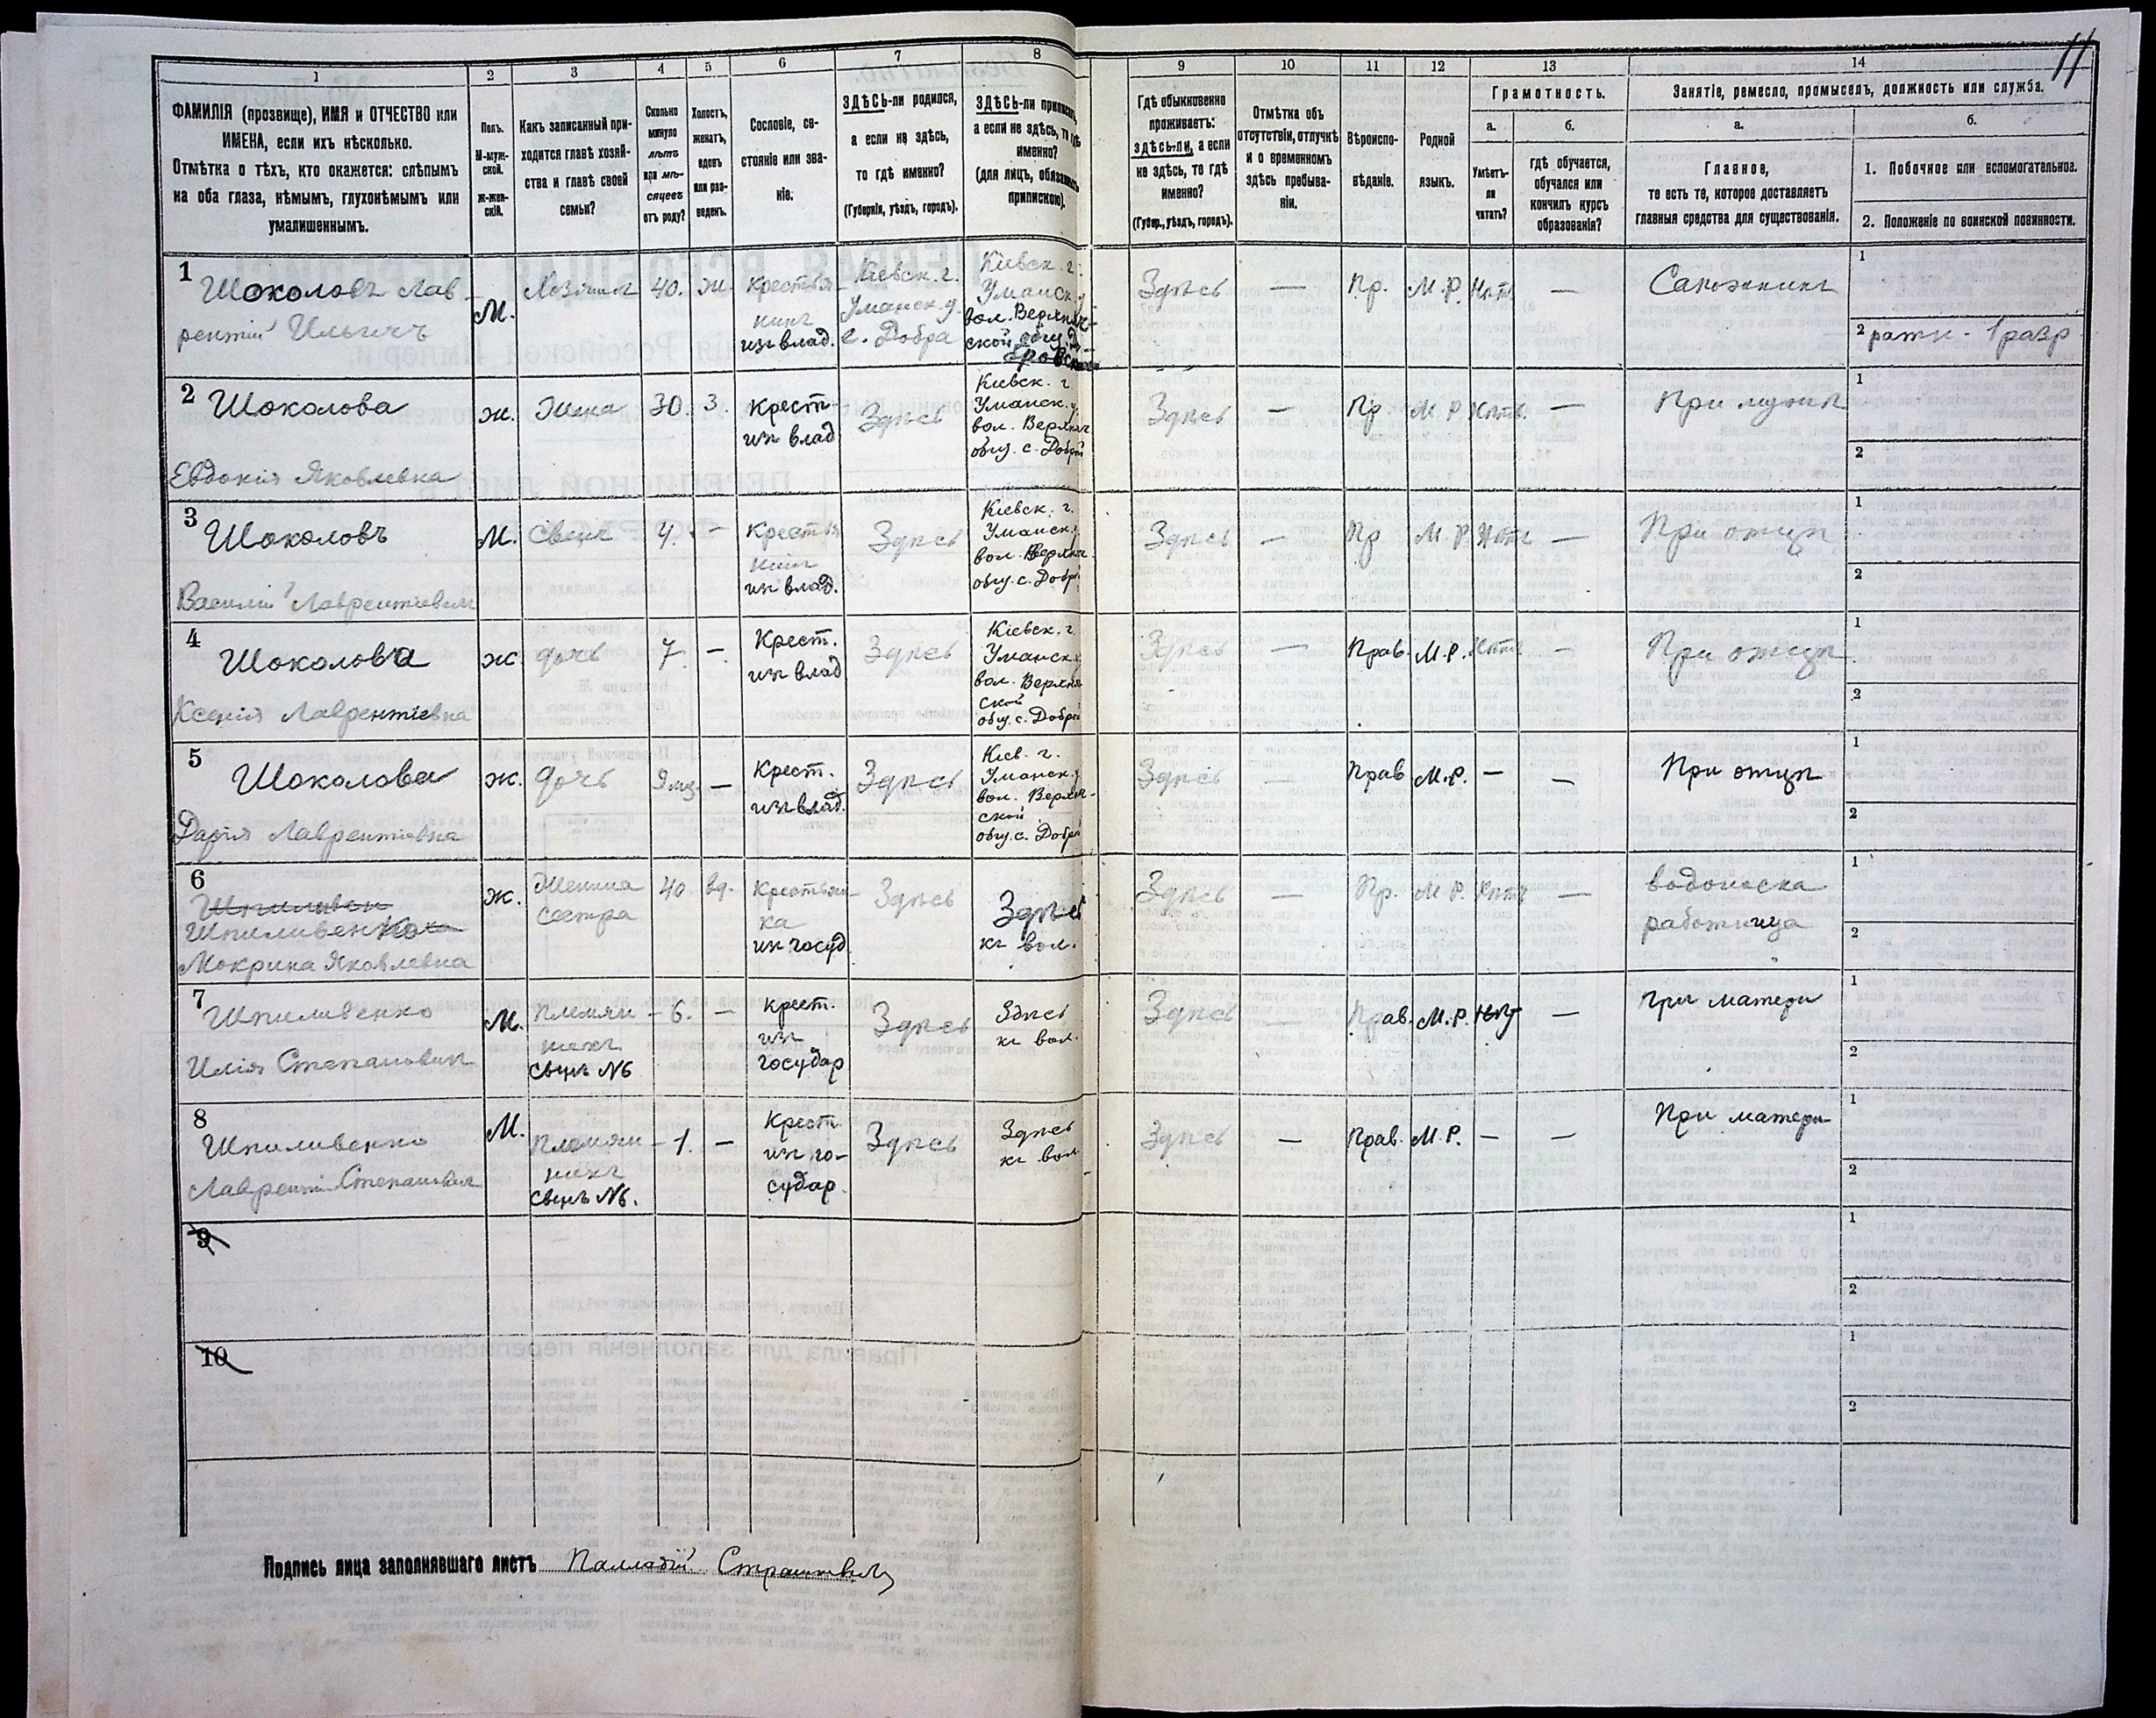 11
1 2 3 4 5 6 7 8 9 10 11 12 13 14
ФАМИЛІЯ (прозвище), ИМЯ и ОТЧЕСТВО или
ИМЕНА, если ихъ нѣсколько.
Отмѣтка о тѣхъ, кто окажется: слѣпымъ
на оба глаза, нѣмымъ, глухонѣмымъ или
умалишеннымъ.
Полъ.
М-муж-
ской.
ж-жен-
скій.
Какъ записанный при-
ходится главѣ хозяй-
ства и главѣ своей
семьи?
Сколько
минуло
лѣтъ
или мѣ-
сяцевъ
отъ роду?
Холостъ,
женатъ,
вдовъ
или раз-
веденъ.
Сословіе, со-
стояніе или зва-
ніе.
ЗДѢСЬ-ли родился,
а если не здѣсь,
то гдѣ именно?
(Губернія, уѣздъ, городъ).
ЗДѢСЬ-ли приписанъ
а если не здѣсь, то гдѣ
именно?
(для лицъ, обязан
припискою).
Гдѣ обыкновенно
проживаетъ:
здѣсь-ли, а если
не здѣсь, то гдѣ
именно?
(Губер., уѣздъ, городъ).
Отмѣтка объ
отсутствіи, отлучкѣ
и о временномъ
здѣсь пребыва-
ніи.
Вѣроиспо-
вѣданіе.
Родной
языкъ.
Грамотность.
а.
Умѣетъ-
ли
читать?
б.
гдѣ обучается,
обучался или
кончилъ курсъ
образованія?
Занятіе, ремесло, промыселъ, должность или служба.
а.
Главное,
то есть то, которое доставляетъ
главныя средства для существованія.
б.
1. Побочное или вспомогательное.
2. Положеніе по воинской повинности.
1
Шоколовъ Лав-
рентій Ильичъ
М.
Хозяинъ
40.
Ж.
Крестья-
нинъ
изъ влад.
Кіевск. г.
Уманск. у.
с. Добра
Кіевск. г.
Уманск. у
вол. Верхняч-
ской общ. Д
бровск
Здѣсь
—
Пр.
М.Р.
Нѣтъ
—
Сапожникъ
1
2 ратн. 1 разр
2
Шоколова
Евдокія Яковлевна
ж.
Жена
30.
З.
Крест
изъ влад
Здѣсь
Кіевск. г
Уманск. у.
вол. Верхняч
общ. с. Добрый
Здѣсь
—
Пр
М.Р
Нѣтъ
—
При мужѣ
1
2
3
Шоколовъ
Василій Лаврентіевичъ
М.
Сынъ
4.
-
Крестья
нинъ
изъ влад.
Здѣсь
Кіевск. г.
Уманск.
вол. Верхняч.
общ. с. Добр
Здѣсь
—
Пр
М.Р.
Нѣтъ
—
При отцѣ
1
2
4
Шоколова
Ксенія Лаврентіевна
ж.
дочь
7.
—
Крест.
изъ влад
Здѣсь
Кіевск. г
Уманск.
вол. Верхняч
ской
общ. с. Добрый
Здѣсь
—
Прав.
М.Р.
Нѣтъ
—
При отцѣ
1
2
5
Шоколова
Дарія Лаврентіевна
ж.
дочь
9 мц.
—
Крест.
изъ влад.
Здѣсь
Кіев. г.
Уманск. у
вол. Верхняч-
ской
общ. с. Добрый
Здѣсь
—
Прав
М.Р.
—
—
При отцѣ
1
2
6
Шпиливенко
Мокрина Яковлевна
ж.
Женина
сестра
40.
вд.
Крестьян-
ка
изъ госуд
Здѣсь
Здѣсь
къ вол.
Здѣсь
—
Пр.
М.Р.
Нѣтъ
—
водоноска
работница
1
2
7
Шпиливенко
Илія Степановичъ
М.
Племян-
никъ
сынъ №6
6.
—
Крест.
изъ
государ
Здѣсь
Здѣсь
къ вол.
Здѣсь
—
Прав.
М.Р.
Нѣт
—
При матери
1
2
8
Шпиливенко
Лаврентій Степановичъ
М.
Племян-
никъ
сынъ №6.
1.
—
Крест.
изъ го-
судар.
Здѣсь
Здѣсь
къ вол
Здѣсь
—
Прав.
М.Р.
—
—
При матери
1
2
9
1
2
10
1
2
Подпись лица заполнявшаго листъ Палладій